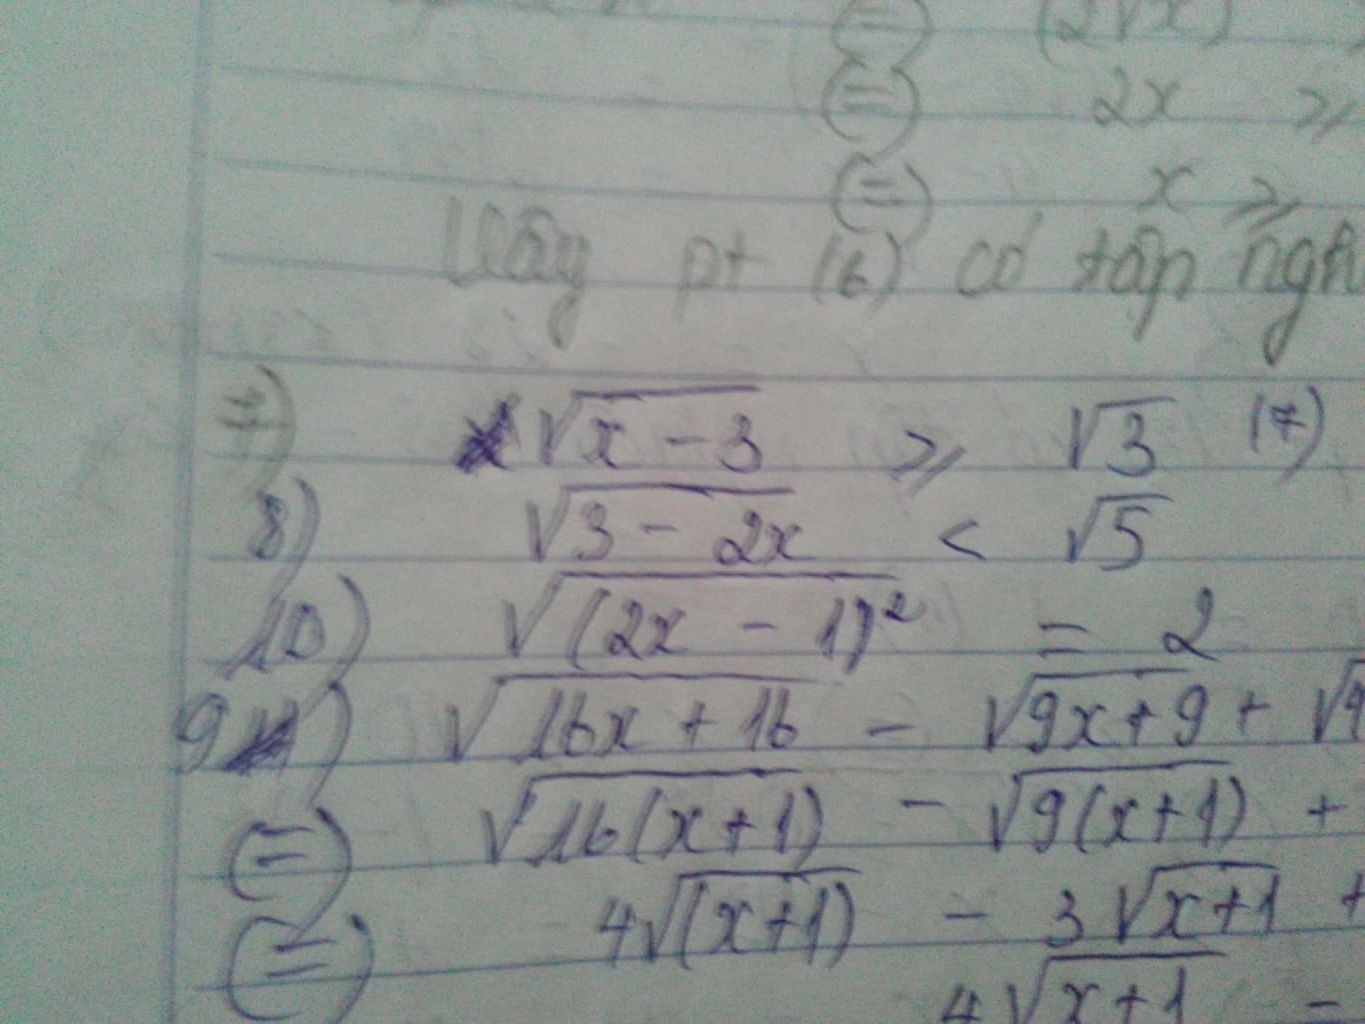 (=) (2√x)
(=) 2x ≥
(=) x ≥
Vậy pt (6) có tập ngh
7) √x - 3 ≥ √3 (7)
8) √3 - 2x < √5
10) √(2x - 1)² = 2
9) √16x + 16 - √9x + 9 + √4
(=) √16(x+1) - √9(x+1) +
(=) 4√(x+1) - 3√x+1 +
4√x+1 -